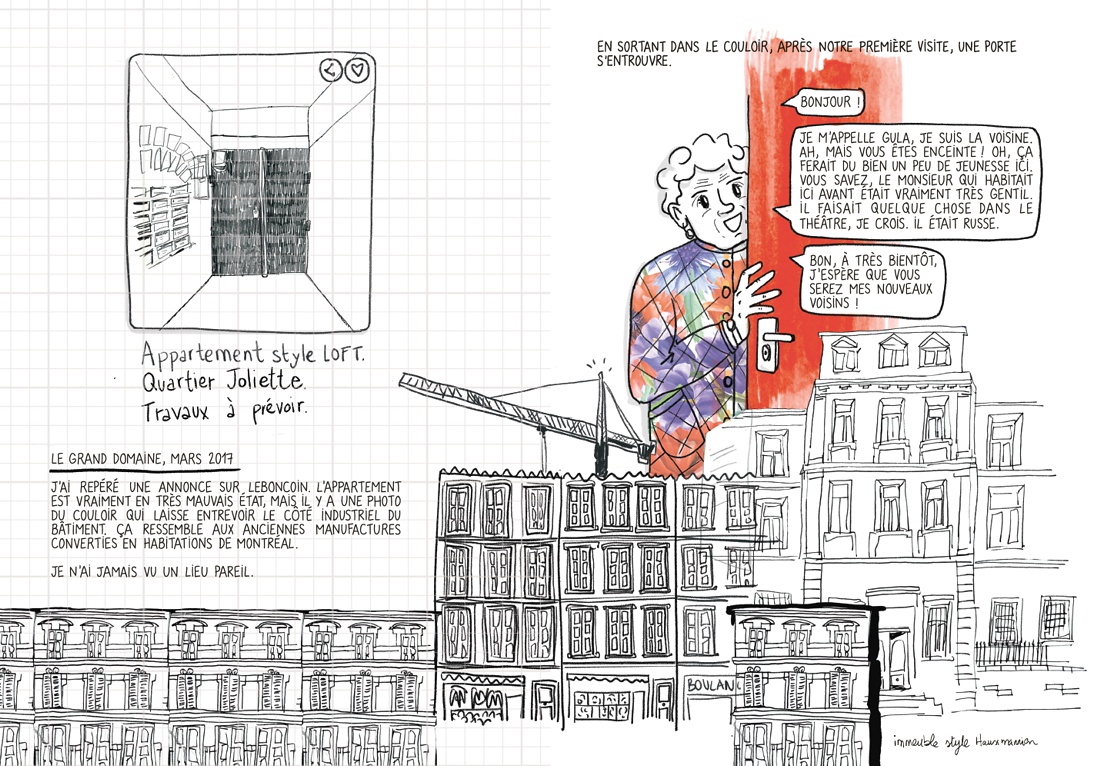 Appartement style LOFT.
Quartier Joliette.
Travaux à prévoir.
LE GRAND DOMAINE, MARS 2017
J'AI REPÉRÉ UNE ANNONCE SUR LEBONCOIN. L'APPARTEMENT
EST VRAIMENT EN TRÈS MAUVAIS ÉTAT, MAIS IL Y A UNE PHOTO
DU COULOIR QUI LAISSE ENTREVOIR LE CÔTÉ INDUSTRIEL DU
BÂTIMENT. ÇA RESSEMBLE AUX ANCIENNES MANUFACTURES
CONVERTIES EN HABITATIONS DE MONTRÉAL.
JE N'AI JAMAIS VU UN LIEU PAREIL.
EN SORTANT DANS LE COULOIR, APRÈS NOTRE PREMIÈRE VISITE, UNE PORTE
S'ENTROUVRE.
BONJOUR !
JE M'APPELLE GULA, JE SUIS LA VOISINE.
AH, MAIS VOUS ÊTES ENCEINTE ! OH, ÇA
FERAIT DU BIEN UN PEU DE JEUNESSE ICI.
VOUS SAVEZ, LE MONSIEUR QUI HABITAIT
ICI AVANT ÉTAIT VRAIMENT TRÈS GENTIL.
IL FAISAIT QUELQUE CHOSE DANS LE
THÉÂTRE, JE CROIS. IL ÉTAIT RUSSE.
BON, À TRÈS BIENTÔT,
J'ESPÈRE QUE VOUS
SEREZ MES NOUVEAUX
VOISINS !
BOULAN
immeuble style Haussmannien